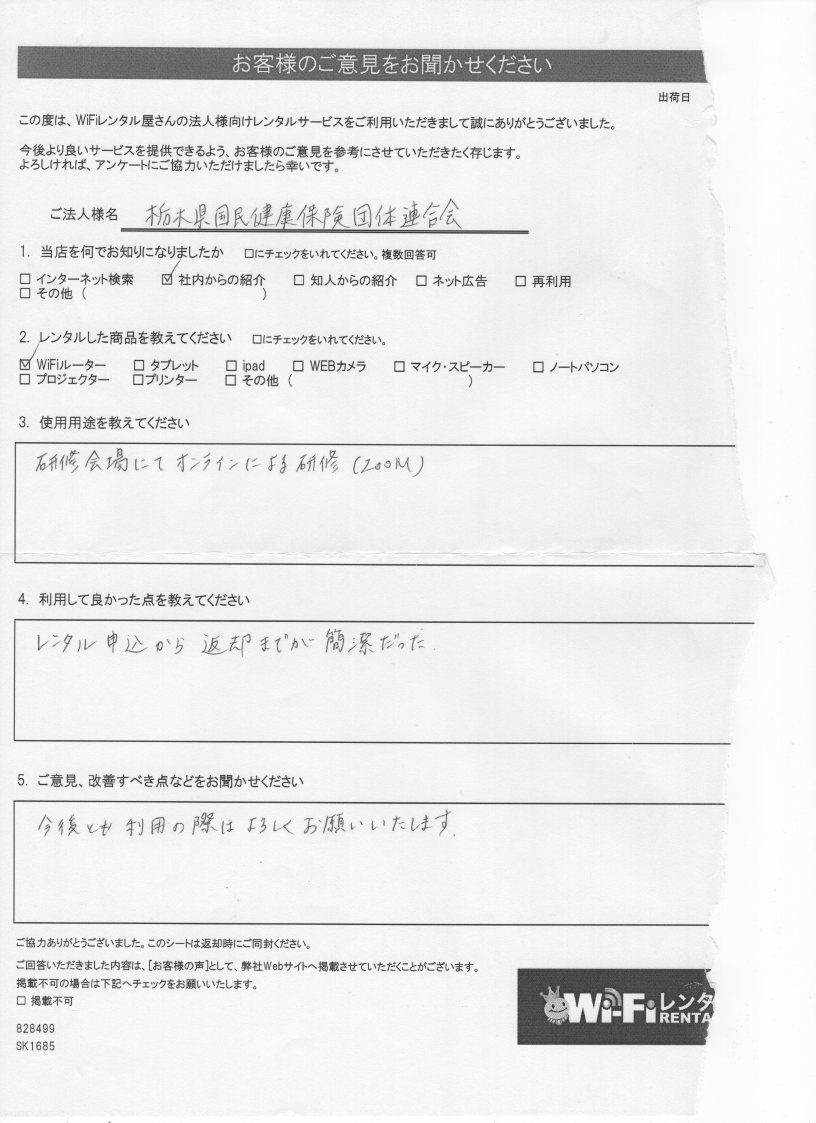 お客様のご意見をお聞かせください
出荷日
この度は、WiFiレンタル屋さんの法人様向けレンタルサービスをご利用いただきまして誠にありがとうございました。
今後より良いサービスを提供できるよう、お客様のご意見を参考にさせていただきたく存じます。
よろしければ、アンケートにご協力いただけましたら幸いです。
ご法人様名 栃木県国民健康保険団体連合会
1. 当店を何でお知りになりましたか □にチェックをいれてください。複数回答可
□ インターネット検索 ☑ 社内からの紹介 □ 知人からの紹介 □ ネット広告 □ 再利用
□ その他 ( )
2. レンタルした商品を教えてください □にチェックをいれてください。
☑ WiFiルーター □ タブレット □ ipad □ WEBカメラ □ マイク・スピーカー □ ノートパソコン
□ プロジェクター □プリンター □ その他 ( )
3. 使用用途を教えてください
研修会場にてオンラインによる研修 (ZOOM)
4. 利用して良かった点を教えてください
レンタル申込から返却までが簡潔だった.
5. ご意見、改善すべき点などをお聞かせください
今後とも利用の際はよろしくお願いいたします.
ご協力ありがとうございました。このシートは返却時にご同封ください。
ご回答いただきました内容は、[お客様の声]として、弊社Webサイトへ掲載させていただくことがございます。
掲載不可の場合は下記へチェックをお願いいたします。
□ 掲載不可
828499
SK1685
Wi-Fi レンタ
RENTA